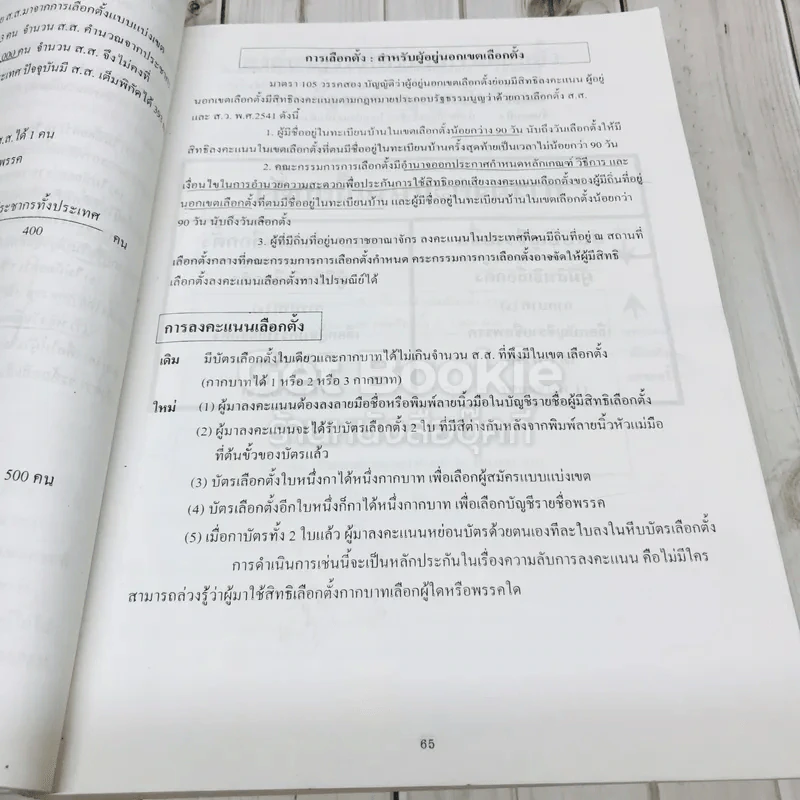 ส.ส.มาจากการเลือกตั้งแบบแบ่งเขต
3 คน จำนวน ส.ส. คำนวณจากประชากร
,000 คน จำนวน ส.ส. จึงไม่คงที่
ประเทศ ปัจจุบันมี ส.ส. เต็มพิกัดได้
ส.ส.ได้ 1 คน
พรรค
ประชากรทั้งประเทศ
400
คน
500 คน
การเลือกตั้ง : สำหรับผู้อยู่นอกเขตเลือกตั้ง
มาตรา 105 วรรคสอง บัญญัติว่าผู้อยู่นอกเขตเลือกตั้งย่อมมีสิทธิลงคะแนน ผู้อยู่
นอกเขตเลือกตั้งมีสิทธิลงคะแนนตามกฎหมายประกอบรัฐธรรมนูญว่าด้วยการเลือกตั้ง ส.ส.
และ ส.ว. พ.ศ.2541 ดังนี้
1. ผู้มีชื่ออยู่ในทะเบียนบ้านในเขตเลือกตั้งน้อยกว่าง 90 วัน นับถึงวันเลือกตั้งให้มี
สิทธิลงคะแนนในเขตเลือกตั้งที่ตนมีชื่ออยู่ในทะเบียนบ้านครั้งสุดท้ายเป็นเวลาไม่น้อยกว่า 90 วัน
2. คณะกรรมการการเลือกตั้งมีอำนาจออกประกาศกำหนดหลักเกณฑ์ วิธีการ และ
เงื่อนไขในการอำนวยความสะดวกเพื่อประกันการใช้สิทธิออกเสียงลงคะแนนเลือกตั้งของผู้มีถิ่นที่อยู่
นอกเขตเลือกตั้งที่ตนมีชื่ออยู่ในทะเบียนบ้าน และผู้มีชื่ออยู่ในทะเบียนบ้านในเขตเลือกตั้งน้อยกว่า
90 วัน นับถึงวันเลือกตั้ง
3. ผู้ที่มีถิ่นที่อยู่นอกราชอาณาจักร ลงคะแนนในประเทศที่ตนมีถิ่นที่อยู่ ณ สถานที่
เลือกตั้งกลางที่คณะกรรมการการเลือกตั้งกำหนด คระกรรมการการเลือกตั้งอาจจัดให้ผู้มีสิทธิ
เลือกตั้งลงคะแนนเลือกตั้งทางไปรษณีย์ได้
การลงคะแนนเลือกตั้ง
เดิม มีบัตรเลือกตั้งใบเดียวและกากบาทได้ไม่เกินจำนวน ส.ส. ที่พึงมีในเขต เลือกตั้ง
(กากบาทได้ 1 หรือ 2 หรือ 3 กากบาท)
Get Bookie
ใหม่ (1) ผู้มาลงคะแนนต้องลงลายมือชื่อหรือพิมพ์ลายนิ้วมือในบัญชีรายชื่อผู้มีสิทธิเลือกตั้ง
ร้านหนังสือบุ๊คกี้
(2) ผู้มาลงคะแนนจะได้รับบัตรเลือกตั้ง 2 ใบ ที่มีสีต่างกันหลังจากพิมพ์ลายนิ้วหัวแม่มือ
ที่ต้นขั้วของบัตรแล้ว
(3) บัตรเลือกตั้งใบหนึ่งกาได้หนึ่งกากบาท เพื่อเลือกผู้สมัครแบบแบ่งเขต
(4) บัตรเลือกตั้งอีกใบหนึ่งก็กาได้หนึ่งกากบาท เพื่อเลือกบัญชีรายชื่อพรรค
(5) เมื่อกาบัตรทั้ง 2 ใบแล้ว ผู้มาลงคะแนนหย่อนบัตรด้วยตนเองทีละใบลงในหีบบัตรเลือกตั้ง
การดำเนินการเช่นนี้จะเป็นหลักประกันในเรื่องความลับการลงคะแนน คือไม่มีใคร
สามารถล่วงรู้ว่าผู้มาใช้สิทธิเลือกตั้งกากบาทเลือกผู้ใดหรือพรรคใด
65